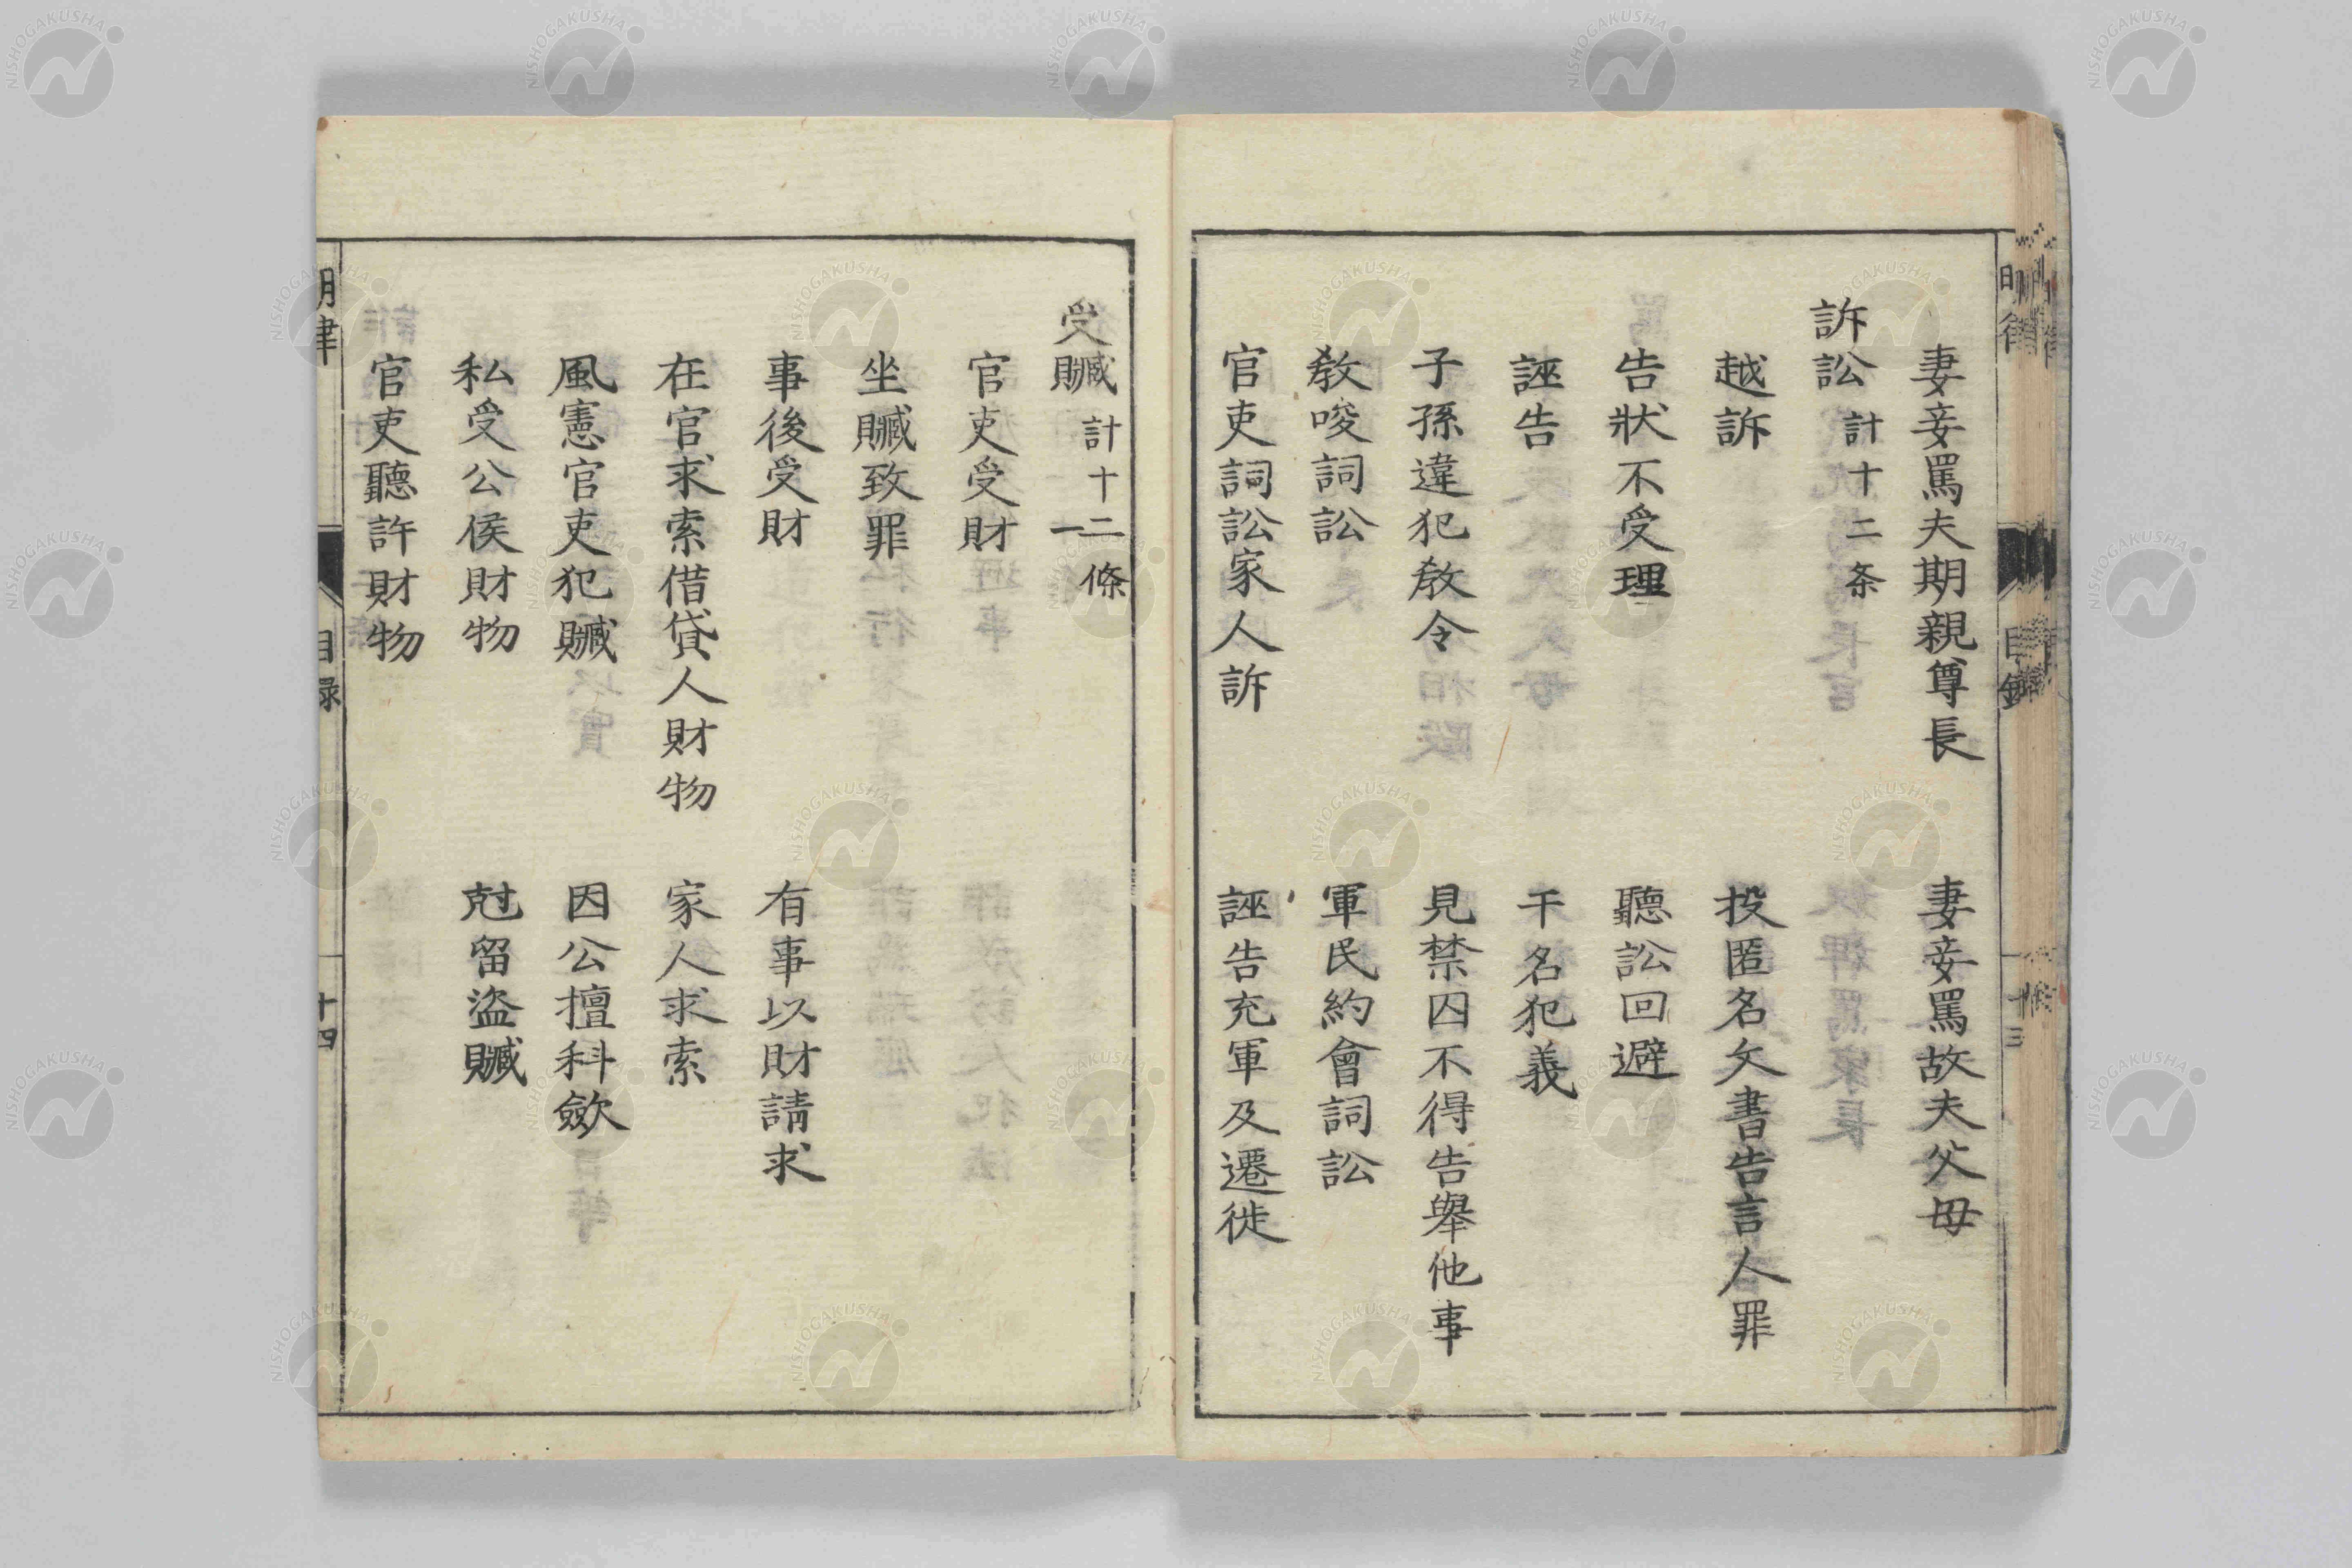 妻妾罵夫期親尊長　妻妾罵故夫父母
訴訟 計十二条
越訴　投匿名文書告言人罪
告狀不受理　聽訟回避
誣告　干名犯義
子孫違犯教令　見禁囚不得告舉他事
教唆詞訟　軍民約會詞訟
官吏詞訟家人訴　誣告充軍及遷徙
受贓 計十一條
官吏受財
坐贓致罪
事後受財　有事以財請求
在官求索借貸人財物　家人求索
風憲官吏犯贓　因公擅科歛
私受公侯財物　尅留盜贓
官吏聽許財物
明律　目録　十四
NISHOGAKUSHA